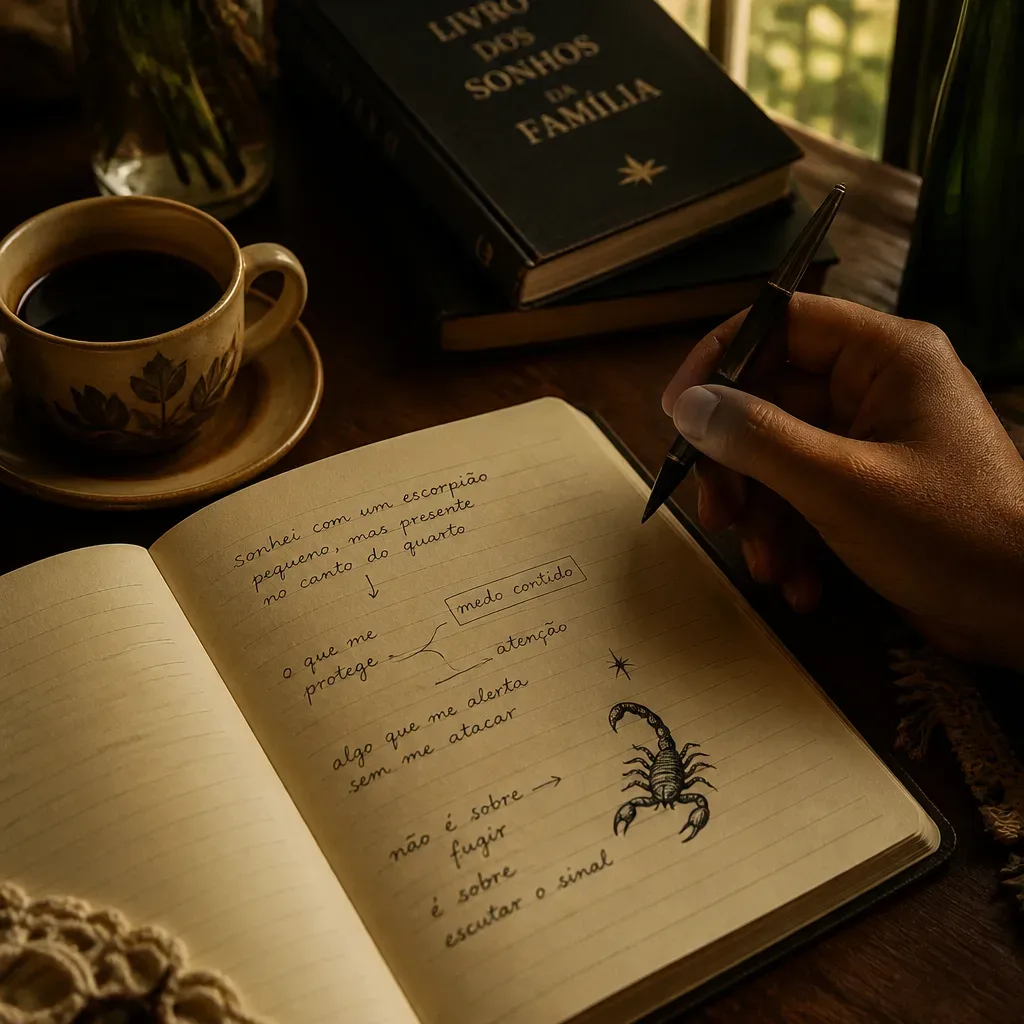 LIVRO
DOS
SONHOS
DA
FAMÍLIA
sonhei com um escorpião
pequeno, mas presente
no canto do quarto
↓
medo contido
o que me
protege
atenção
algo que me alerta
sem me atacar
não é sobre →
fugir
é sobre
escutar o sinal